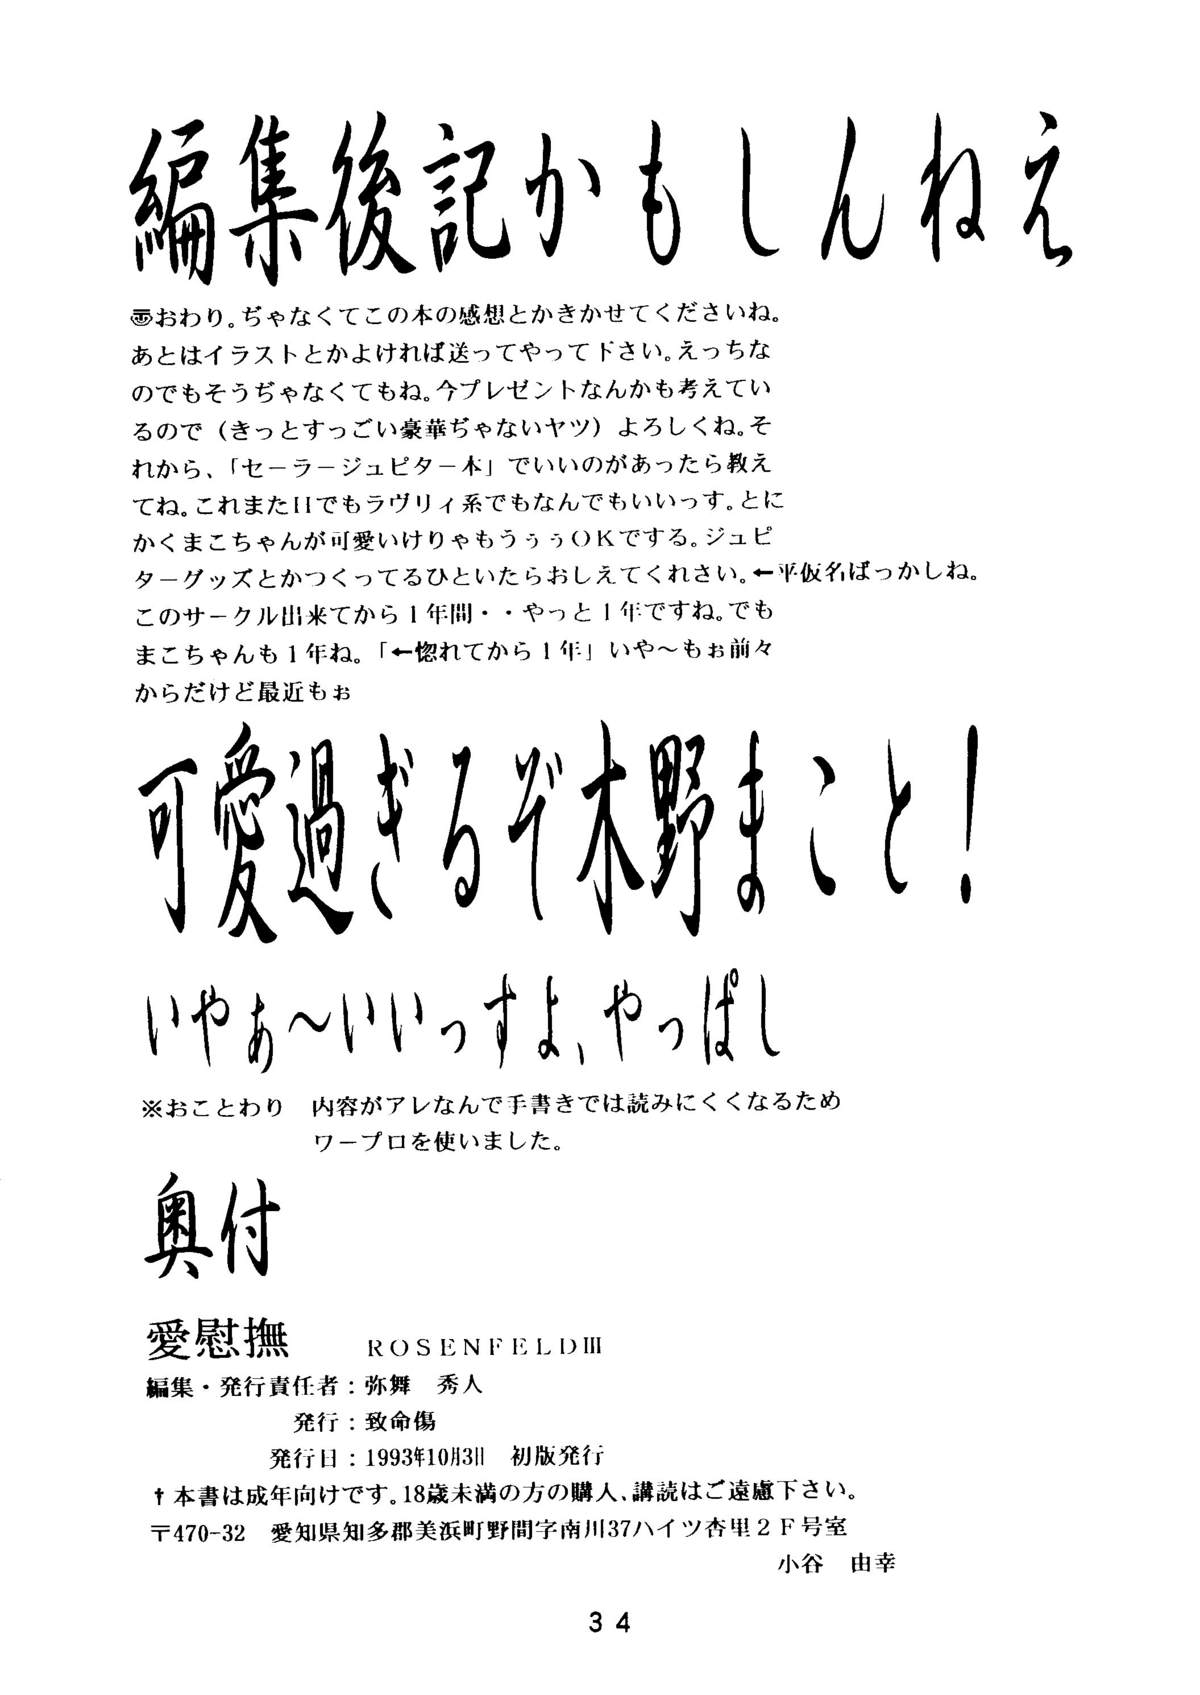 編集後記かもしんねえ
おわり。ぢゃなくてこの本の感想とかきかせてくださいね。
あとはイラストとかよければ送ってやって下さい。えっちな
のでもそうぢゃなくてもね。今プレゼントなんかも考えてい
るので（きっとすっごい豪華ぢゃないヤツ）よろしくね。そ
れから、「セーラージュピター本」でいいのがあったら教え
てね。これまたHでもラヴリィ系でもなんでもいいっす。とに
かくまこちゃんが可愛いけりゃもうぅぅOKでする。ジュピ
ターグッズとかつくってるひといたらおしえてくれさい。←平仮名ばっかしね。
このサークル出来てから１年間・・やっと１年ですね。でも
まこちゃんも１年ね。「←惚れてから１年」いや～もぉ前々
からだけど最近もぉ
可愛過ぎるぞ木野まこと！
いやぁ～いいっすよ、やっぱし
※おことわり　内容がアレなんで手書きでは読みにくくなるため
ワープロを使いました。
奥付
愛慰撫　ＲＯＳＥＮＦＥＬＤⅢ
編集・発行責任者：弥舞　秀人
発行：致命傷
発行日：1993年10月3日　初版発行
†本書は成年向けです。18歳未満の方の購入、講読はご遠慮下さい。
〒470-32　愛知県知多郡美浜町野間字南川37ハイツ杏里２Ｆ号室
小谷　由幸
３４